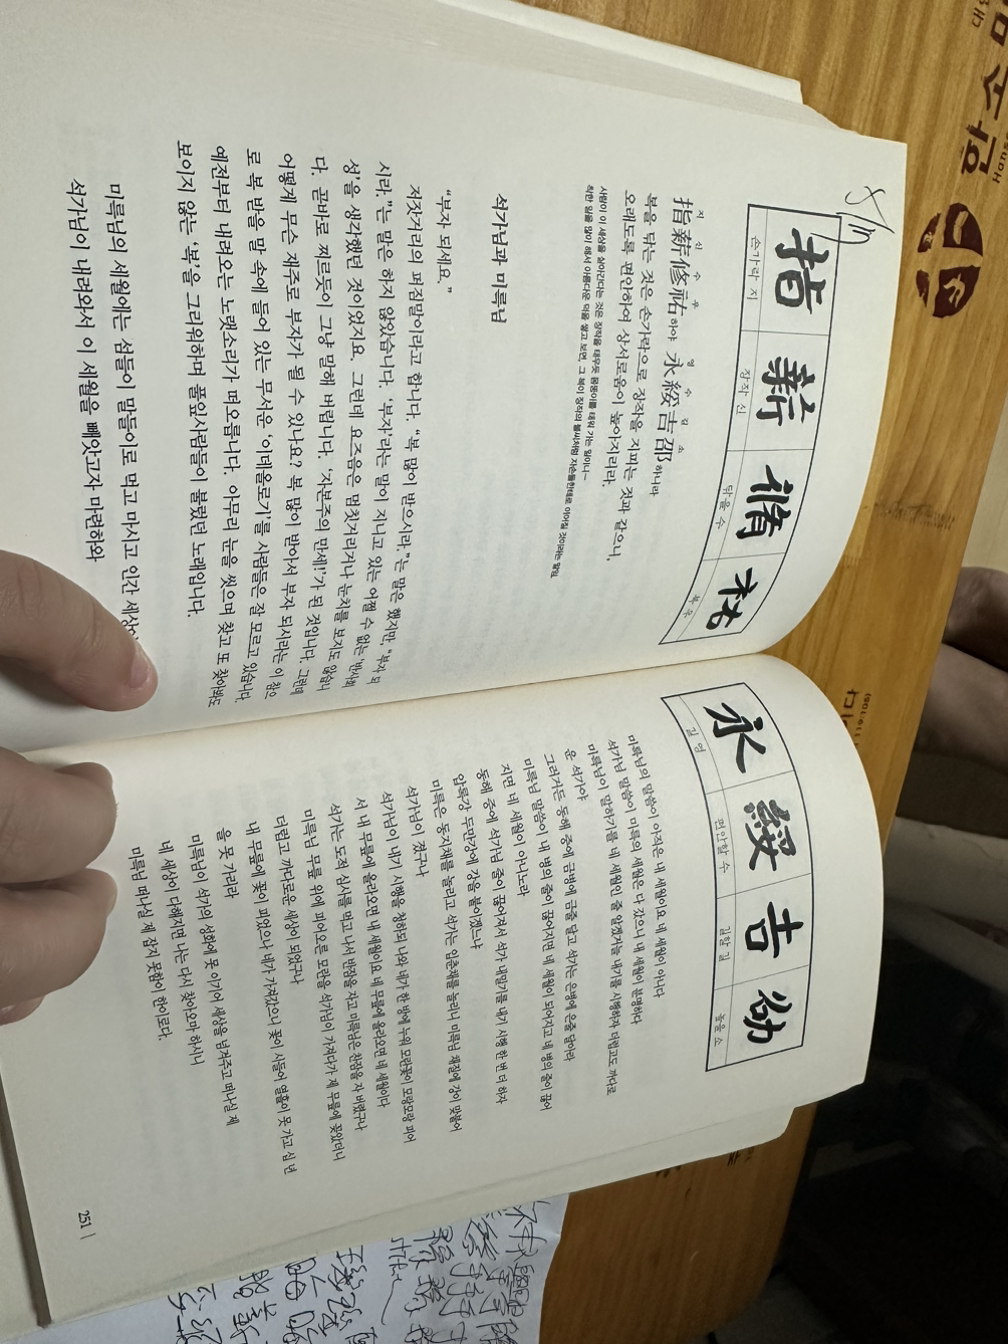 指 薪 脩 祐
손가락 지 장작 신 닦을 수 복 우
지 신 수 우 영 수 길 소
指薪修祐하야 永綏吉邵하나라
복을 닦는 것은 손가락으로 장작을 지피는 것과 같으니,
오래도록 편안하여 상서로움이 높아지리라.
사람이 이 세상을 살아간다는 것은 장작을 태우듯 몸뚱이를 태워 가는 일이니—
착한 일을 많이 해서 아름다운 덕을 쌓고 보면, 그 복이 장작의 불씨처럼 자손들한테로 이어질 것이라는 말임.
석가님과 미륵님
“부자 되세요.”
저잣거리의 퍼짐말이라고 합니다. “복 많이 받으시라.”는 말은 했지만, “부자 되
시라.”는 말은 하지 않았습니다. ‘부자’라는 말이 지니고 있는 어쩔 수 없는 ‘반사회
성’을 생각했던 것이었지요. 그런데 요즈음은 멈칫거리거나 눈치를 보지도 않습니
다. 곧바로 찌르듯이 그냥 말해 버립니다. ‘자본주의 만세!’가 된 것입니다. 그런데
어떻게 무슨 재주로 부자가 될 수 있나요? 복 많이 받아서 부자 되시라는 이 참으
로 복 받을 말 속에 들어 있는 무서운 ‘이데올로기’를 사람들은 잘 모르고 있습니다.
예전부터 내려오는 노랫소리가 떠오릅니다. 아무리 눈을 씻으며 찾고 또 찾아봐도
보이지 않는 ‘복’을 그리워하며 풀잎사람들이 불렀던 노래입니다.
미륵님의 세월에는 섬들이 말들이로 먹고 마시고 인간 세상이
석가님이 내려와서 이 세월을 빼앗고자 마련하와
永 綏 吉 劭
길 영 편안할 수 길할 길 높을 소
미륵님의 말씀이 아직은 내 세월이요 네 세월이 아니다
석가님 말씀이 미륵의 세월은 다 갔으니 내 세월이 분명하다
미륵님이 말하기를 네 세월인 줄 알겠거늘 내기를 시행하자 더럽고도 까다로
운 석가야
그러거든 동해 중에 금병에 금줄 달고 석가는 은병에 은줄 달아라
미륵님 말씀이 내 병의 줄이 끊어지면 네 세월이 되어지고 네 병의 줄이 끊어
지면 네 세월이 아니노라
동해 중에 석가님 줄이 끊어져서 석가 내밀기를 내기 시행 한 번 더 하자
압록강 두만강에 강을 붙이겠느냐
미륵은 동지채를 놀리고 석가는 입춘채를 놀리니 미륵님 채질에 강이 맞붙어
석가님이 졌구나
석가님이 내기 시행을 청하되 나와 네가 한 방에 누워 모란꽃이 모랑모랑 피어
서 내 무릎에 올라오면 내 세월이요 네 무릎에 올라오면 네 세월이다
석가는 도적 심사를 먹고 나서 반잠을 자고 미륵님은 찬잠을 자 버렸구나
미륵님 무릎 위에 피어오른 모란을 석가님이 가져다가 제 무릎에 꽂았더니
더럽고 까다로운 세상이 되었구나
내 무릎에 꽃이 피었으나 네가 가져갔으니 꽃이 시들어 열흘이 못 가고 십 년
을 못 가리라
미륵님이 석가의 성화에 못 이기어 세상을 넘겨주고 떠나실 제
네 세상이 다해지면 나는 다시 찾아오마 하시니
미륵님 떠나실 제 잡지 못함이 한이로다.
251